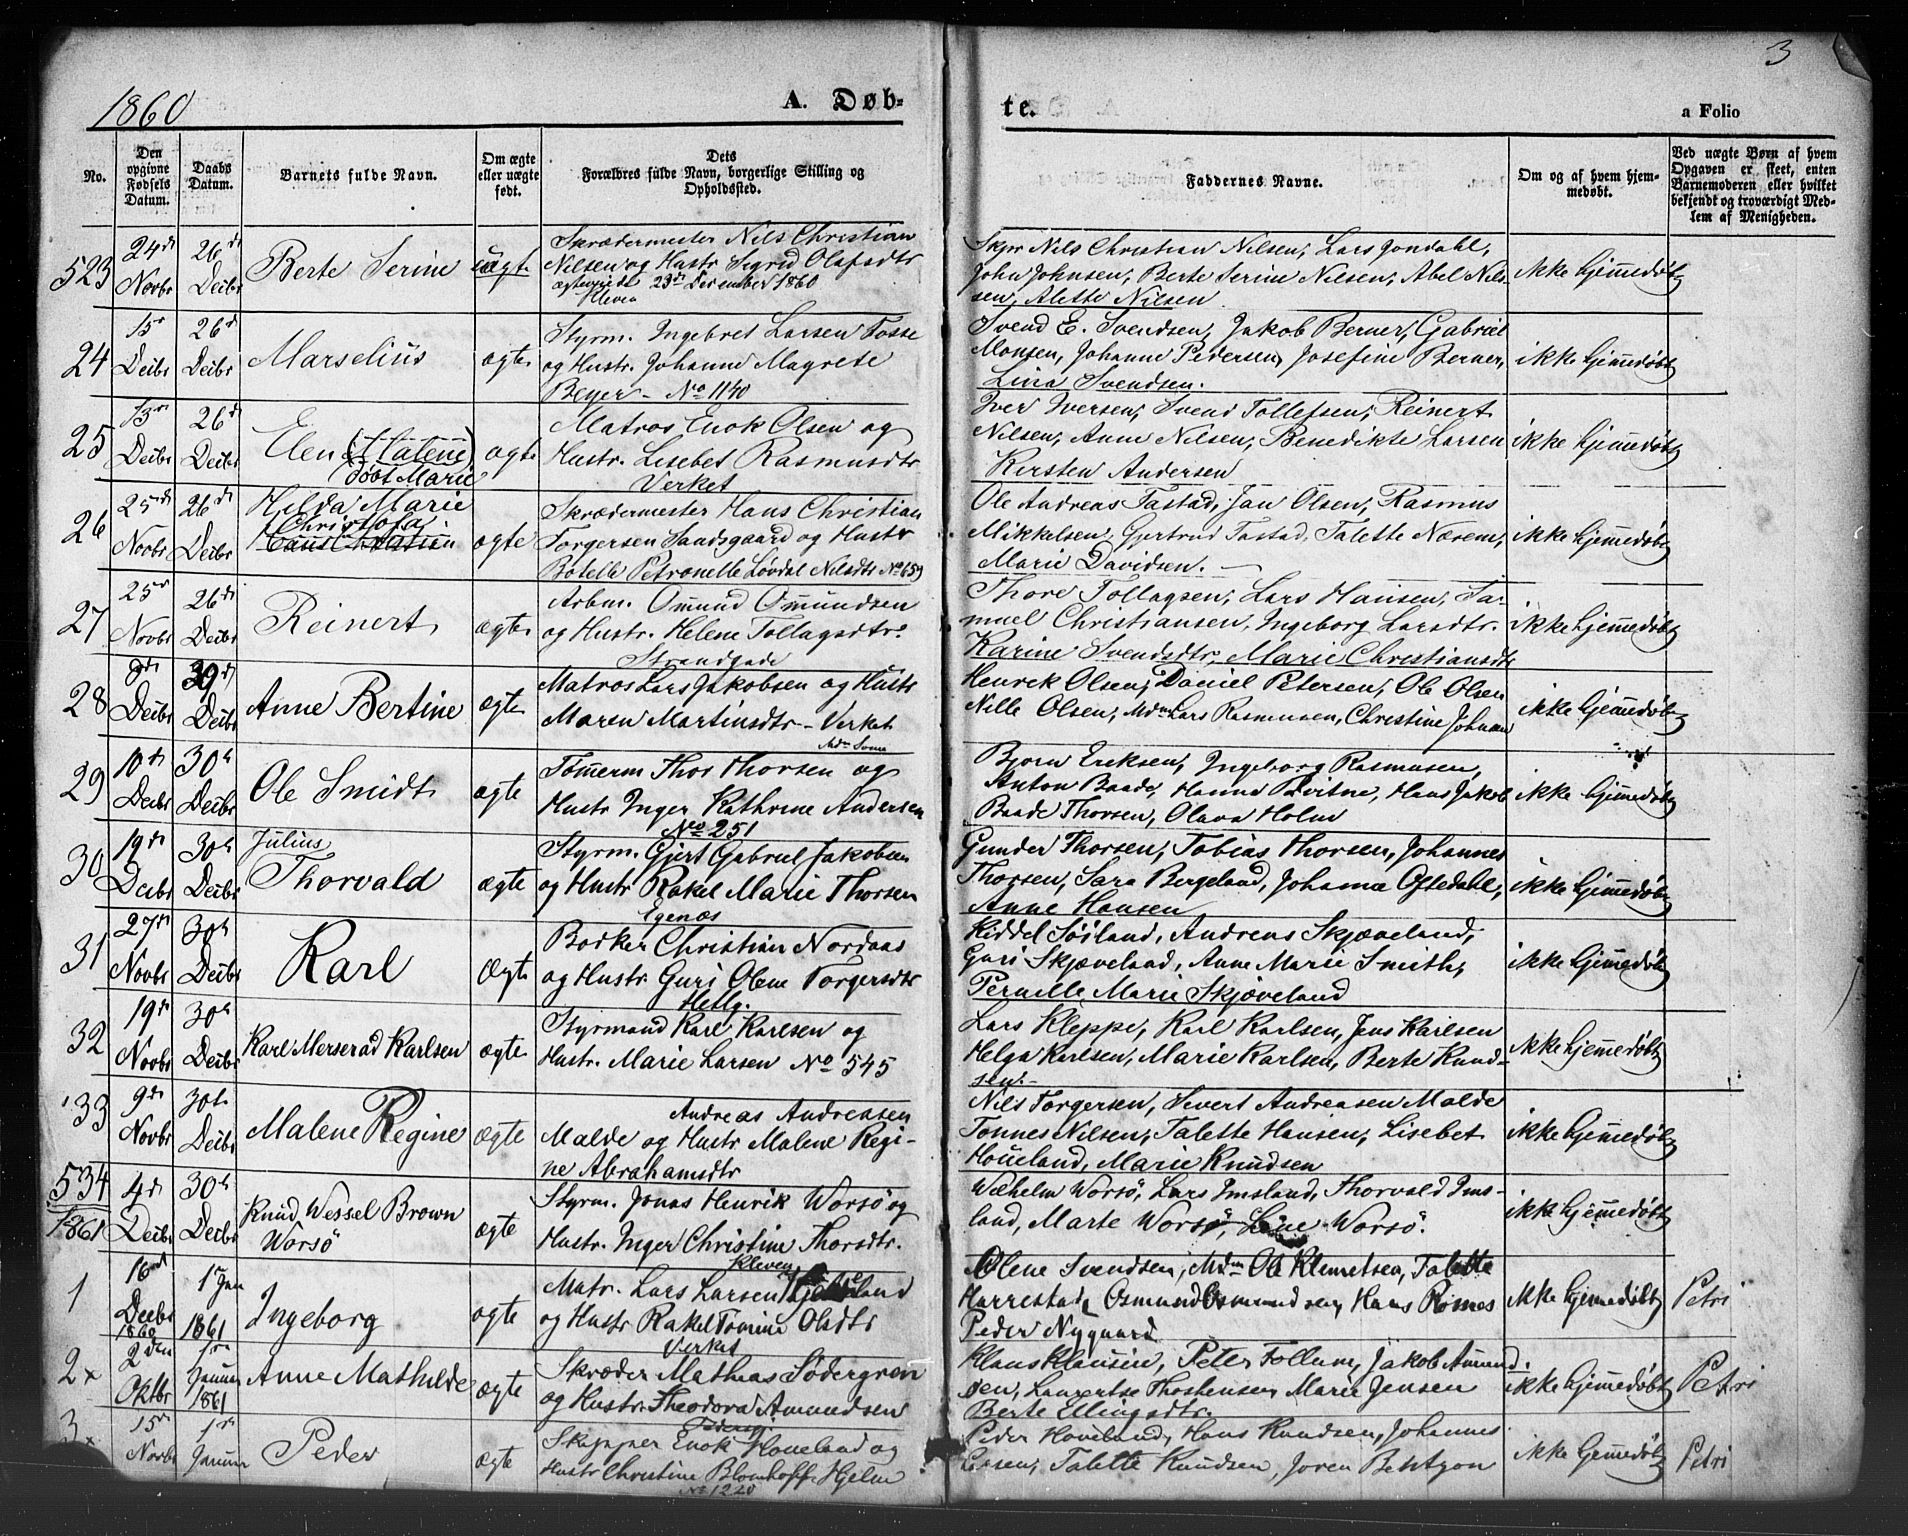 1860
A. Døb-
te.
3
a Folio
No.
Den opgivne Fødsels Datum.
Daabs Datum.
Barnets fulde Navn.
Om ægte eller uægte født.
Dets Forældres fulde Navn, borgerlige Stilling og Opholdssted.
Faddernes Navne.
Om og af hvem hjemmedøbt.
Ved uægte Børn af hvem Opgaven er skeet, enten Barnemoderen eller hvilket bekjendt og troværdigt Medlem af Menigheden.
523
24de Novbr
26de Decbr
Berte Serine
uægte
Skrædermester Nils Christian
Nilsen og Hustr Sigrid Olafsdtr
ægteviede 23de December 1860
Kleven
Skpr Nils Christian Nilsen, Lars Jondahl,
John Johnsen, Berte Serine Nilsen, Abel Nil-
sen, Alette Nilsen
ikke hjemmedøbt
24
15de Decbr
26de Decbr
Marselius
ægte
Styrm. Ingebret Larsen Fosse
og Hustr. Johanne Magrete
Beyer - No 1140
Svend E. Svendsen, Jakob Berner, Gabriel
Monsen, Johanne Pedersen, Josefine Berner,
Lina Svendsen.
ikke hjemmedøbt
25
13de Decbr
26de Decbr
Elen (Malene)
døbt Marie
ægte
Matros Enok Olsen og
Hustr. Lisebet Rasmusdtr
Verket
Iver Iversen, Svend Tollefsen, Reinert
Nilsen, Anne Nilsen, Benedikte Larsen
Kirsten Andersen
ikke hjemmedøbt
26
25de Novbr
26de Decbr
Hilda Marie
Christofa
Hans Christian
ægte
Skrædermester Hans Christian
Torgersen Sandsgaard og Hustr
Botelle Petronelle Løvdal Nilsdtr No 659
Ole Andreas Tastad, Jan Olsen, Rasmus
Mikkelsen, Gjertrud Tastad, Talette Nærem,
Marie Davidsen.
ikke hjemmedøbt
27
25de Novbr
26de Decbr
Reinert
ægte
Arbm. Omund Omundsen
og Hustr. Helene Tollagsdtr.
Strandgade
Thore Tollagsen, Lars Hansen, Sa-
muel Christiansen, Ingeborg Larsdtr.
Karine Svendsdtr, Marie Christiansdtr
ikke hjemmedøbt
28
Decbr
30de Decbr
Anne Bertine
ægte
Matros Lars Jakobsen og Hustr
Maren Martinsdtr - Verket
Henrek Olsen, Daniel Petersen, Ole Olsen
Nille Olsen, Mdm Lars Rasmusen, Christine Johnsen
ikke hjemmedøbt
29
10de Decbr
30te Decbr
Ole Smidt
ægte
Tømerm Thor Thorsen og
Hustr Inger Kathrine Andersen
No 251
Bjorn Eriksen, Ingeborg Rasmusen,
Anton Baade, Hanne Qvitne, Hans Jakob
Baade Thorsen, Olava Holm
ikke hjemmedøbt
30
19de Decbr
30te Decbr
Julius
Thorvald
ægte
Styrm. Gjert Gabriel Jakobsen
og Hustr Rakel Marie Thorsen
Egenæs
Gunder Thorsen, Tobias Thorsen, Johannes
Thorsen, Sara Bergeland, Johanna Oftedahl,
Anne Hansen
ikke hjemmedøbt
31
27de Novbr
30te Decbr
Karl
ægte
Bødker Christian Nordaas
og Hustr. Guri Olene Torgersdtr
Hetlg.
Kiddel Søiland, Andreas Skjæveland,
Guri Skjæveland, Anne Marie Smith,
Pernille Marie Skjæveland
ikke hjemmedøbt
32
19de Novbr
30te Decbr
Karl Merserad Karlsen
ægte
Styrmand Karl Karlsen og
Hustr. Marie Larsen No 545
Lars Kleppe, Karl Karlsen, Jens Karlsen
Helga Karlsen, Marie Karlsen, Berte Knud-
sen.
ikke hjemmedøbt
33
9de Novbr
30te Decbr
Malene Regine
ægte
Andreas Andreasen
Malde og Hustr Malene Regi-
ne Abrahamsdtr
Nils Torgersen, Severt Andreasen Malde
Tønnes Nilsen, Talette Hansen, Lisebet
Houeland, Marie Knudsen
ikke hjemmedøbt
534
4de Decbr
30te Decbr
Knud Wessel Brown
Worsö
ægte
Styrm. Jonas Henrik Worsö og
Hustr. Inger Christine Thorsdtr.
Kleven
Wilhelm Worsö, Lars Imsland, Thorvald Ims-
land, Marte Worsö, Line Worsö.
ikke hjemmedøbt
1861
1
16de Decbr 1860
1ste Jan 1861
Ingeborg
ægte
Matr. Lars Larsen
og Hustr Rakel Tomine Olsdtr
Verket
Olene Svendsen, Mdm Ole Klemetsen, Talette
Harrestad, Osmund Osmundsen, Hans Romes
Peder Nygaard
ikke hjemmedøbt
Petri
2x
2den Oktbr
1ste Januar 1861
Anne Mathilde
ægte
Skræder Mathias Södergren
og Hustr. Theodora Amundsen
Klaus Klausen, Peter Follum, Jakob Amund-
sen, Laurentse Thostensen, Marie Jensen
Berte Ellingsdtr.
ikke hjemmedøbt
Petri
3x
15de Novbr
1ste Januar
Peder
ægte
Skipper Enok Houeland og
Hustr Christine Blomhoff Hjelm
No 1220
Peder Hoveland, Hans Knudsen, Johannes
Talette Knudsen, Joren Bentzon
ikke hjemmedøbt
Petri